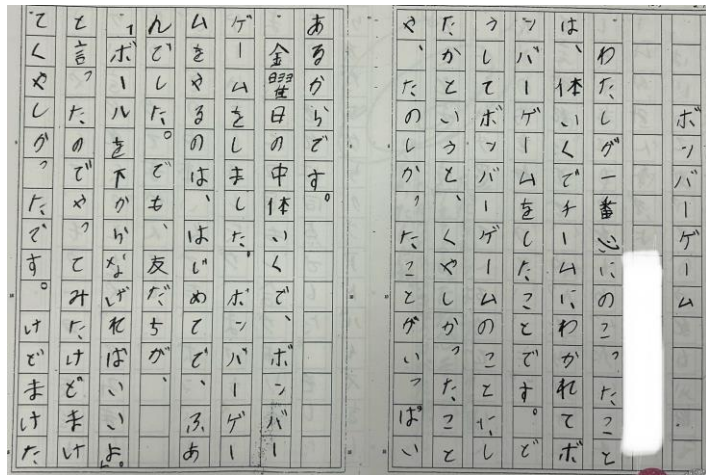 ボンバーゲーム
わたしが一番心にのこったこと
は、体いくでチームにわかれてボ
ンバーゲームをしたことです。ど
うしてボンバーゲームのことにし
たかというと、くやしかったこと
や、たのしかったことがいっぱい
あるからです。
金曜日の中体いくで、ボンバー
ゲームをしました。ボンバーゲー
ムをやるのは、はじめてで、ふあ
んでした。でも、友だちが、
「ボールを下からなげればいいよ。」
と言ったのでやってみたけどまけ
てくやしかったです。けどまけた